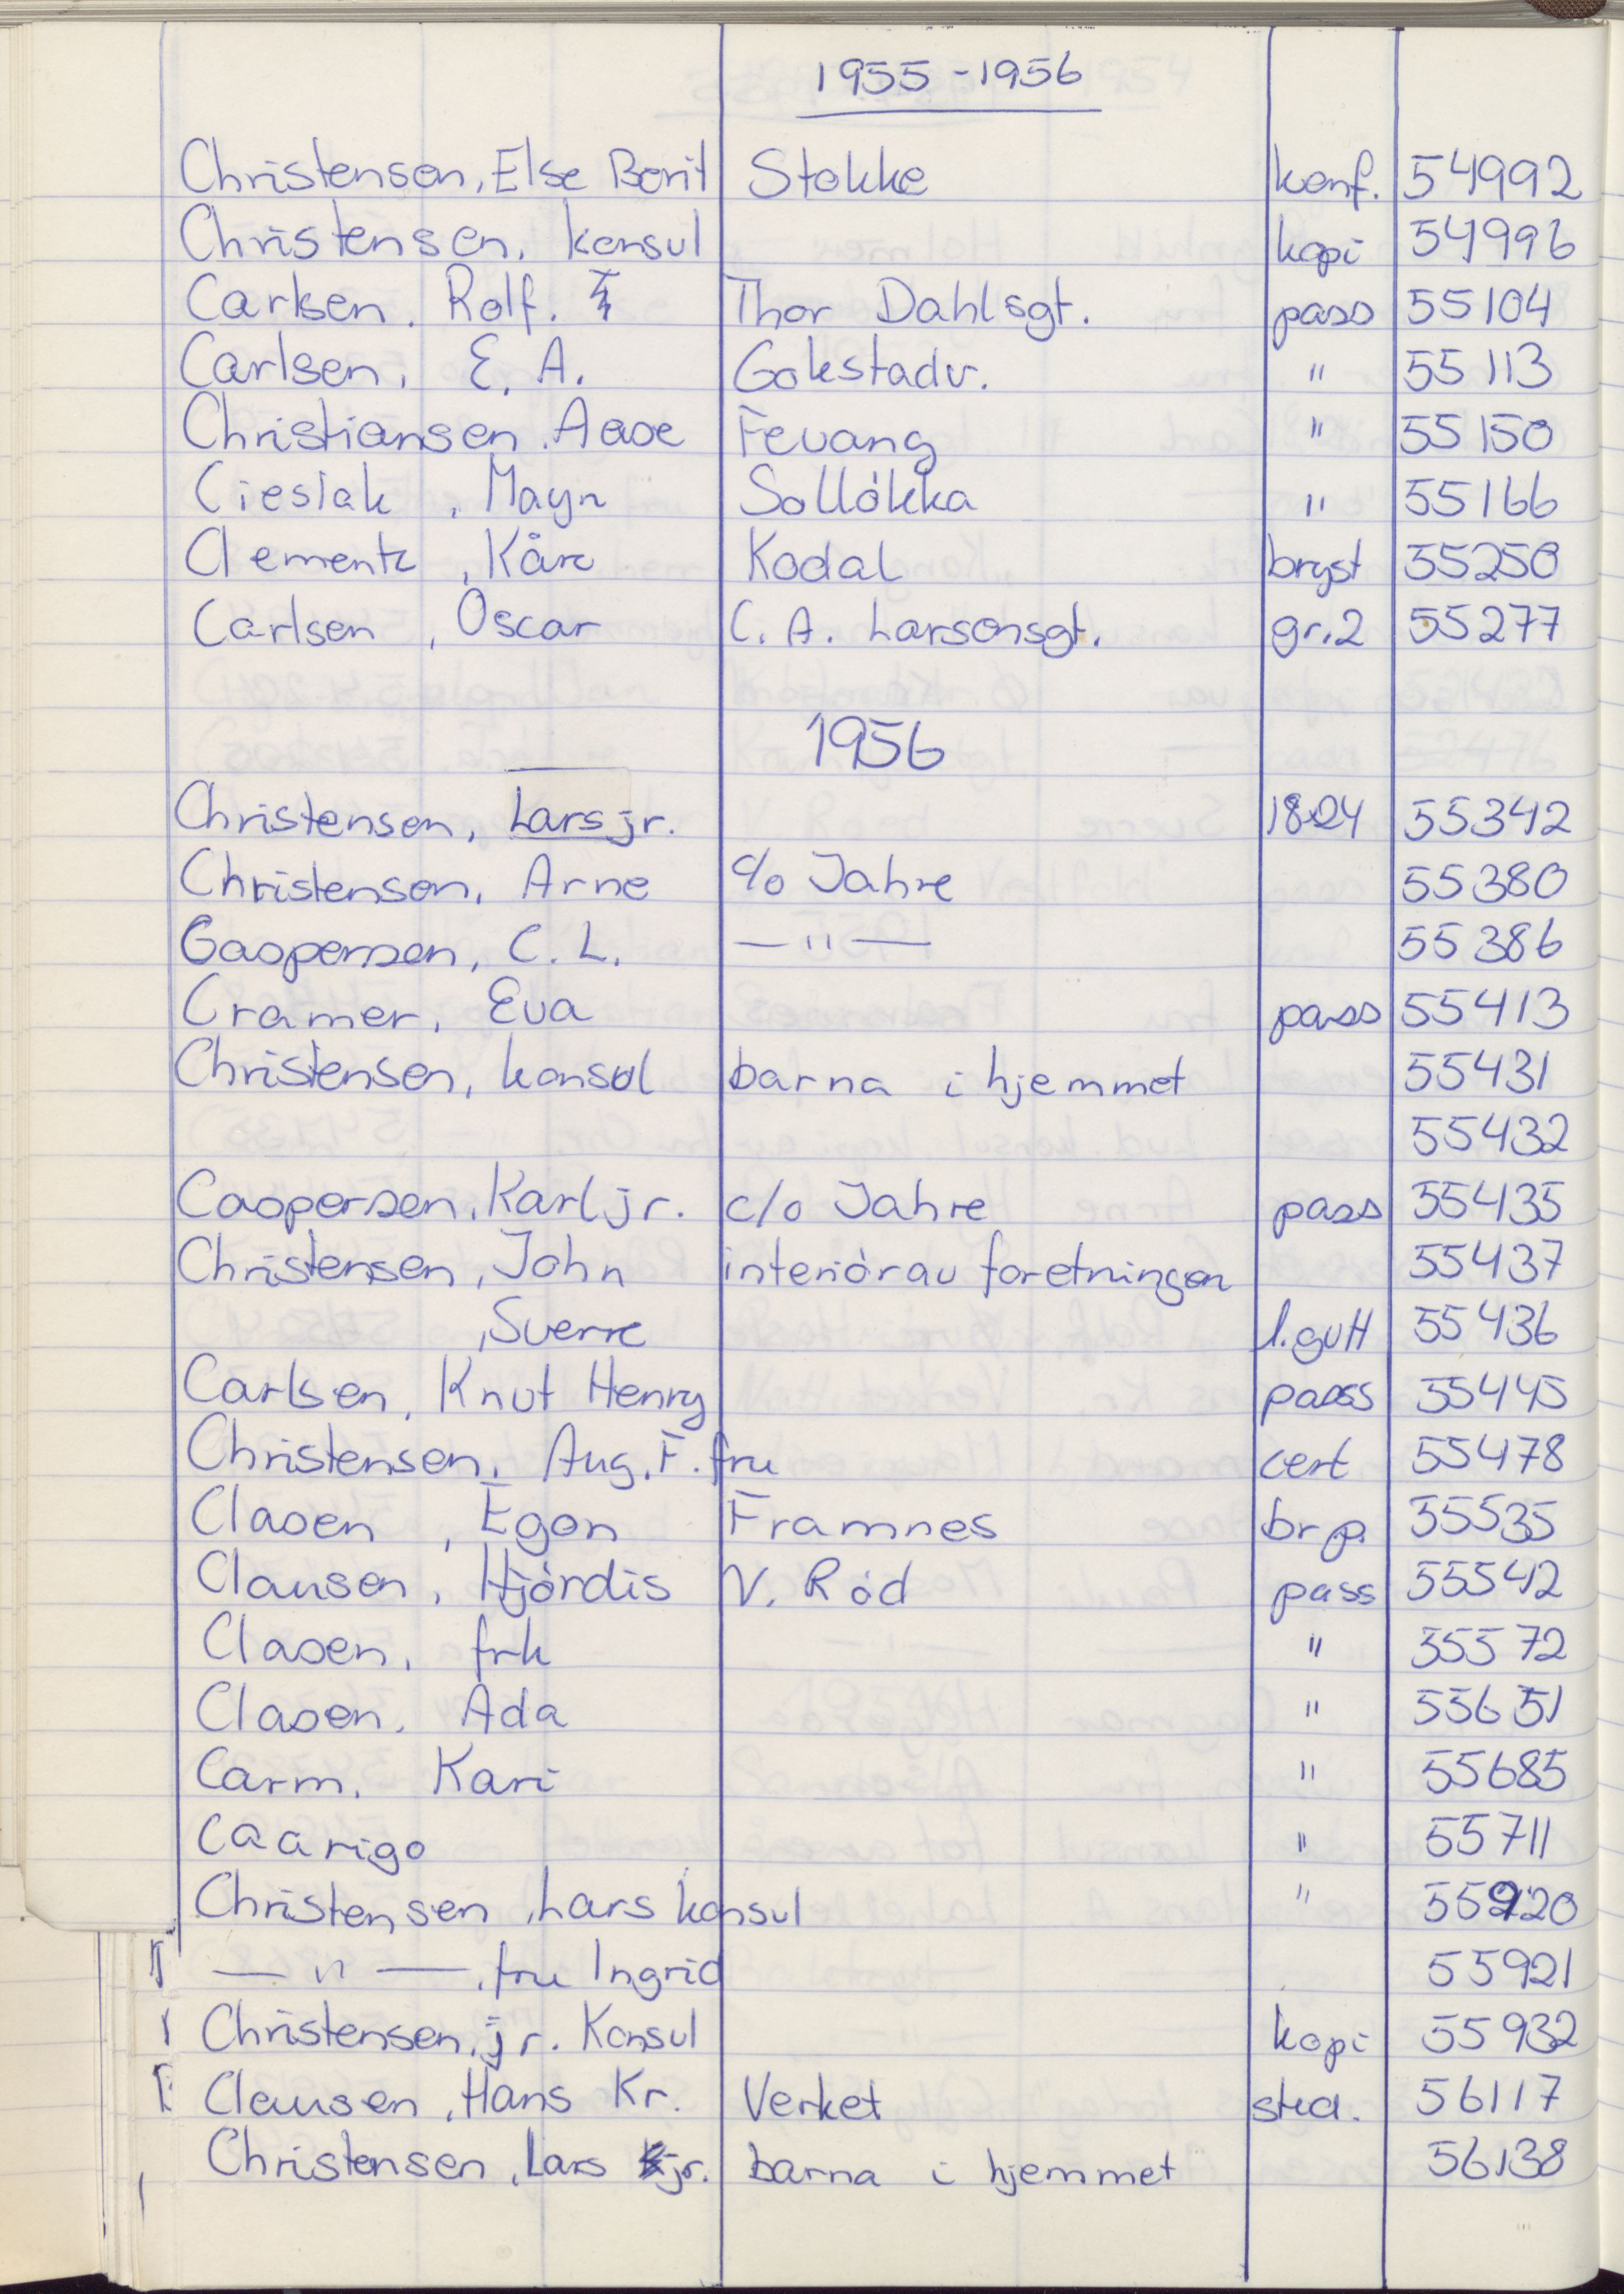 1955 - 1956
Christensen, Else Berit Stokke konf. 54992
Christensen, konsul kopi 54996
Carlsen, Rolf. Thor Dahlsgt. pass 55104
Carlsen, E. A. Gokstadv. " 55113
Christiansen, Aase Fevang " 55150
Cieslak, Mayn Solløkka " 55166
Clementz, Kåre Kodal bryst 55250
Carlsen, Oscar C. A. Larsensgt. gr.2 55277
1956
Christensen, Lars jr. 18x24 55342
Christensen, Arne c/o Jahre 55380
Caspersen, C. L. — " — 55386
Cramer, Eva pass 55413
Christensen, konsul barna i hjemmet 55431
55432
Caspersen, Karl jr. c/o Jahre pass 55435
Christensen, John interiør av foretningen 55437
, Sverre l.gutt 55436
Carlsen, Knut Henry pass 55445
Christensen, Aug. F. fru cert 55478
Clasen, Egon Framnes br p. 55535
Clausen, Hjördis V. Rød pass 55542
Clasen, frk " 55572
Clasen, Ada " 55651
Carm, Kari " 55685
Caarigo " 55711
Christensen, Lars konsul " 55920
— " —, fru Ingrid 55921
Christensen, jr. Konsul kopi 55932
Clausen, Hans Kr. Verket stud. 56117
Christensen, Lars jr. barna i hjemmet 56138